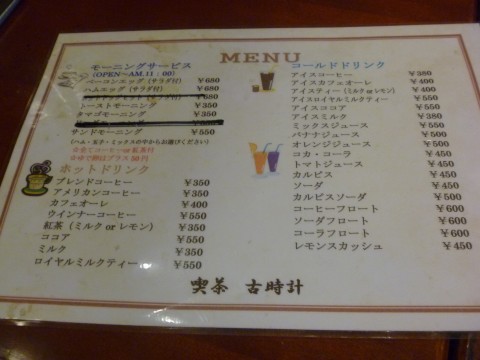 MENU
モーニングサービス
(OPEN～AM.11：00)
ベーコンエッグ (サラダ付) ¥680
ハムエッグ (サラダ付) ¥680
トーストモーニング ¥350
タマゴモーニング ¥350
サンドモーニング ¥550
(ハム・玉子・ミックスの中からお選びください)
ホットドリンク
ブレンドコーヒー ¥350
アメリカンコーヒー ¥350
カフェオーレ ¥400
ウインナーコーヒー ¥550
紅茶 (ミルク or レモン) ¥350
ココア ¥550
ミルク ¥350
ロイヤルミルクティー ¥550
コールドドリンク
アイスコーヒー ¥380
アイスカフェオーレ ¥400
アイスティー (ミルク or レモン) ¥400
アイスロイヤルミルクティー ¥550
アイスココア ¥550
アイスミルク ¥380
ミックスジュース ¥550
バナナジュース ¥500
オレンジジュース ¥500
コカ・コーラ ¥450
トマトジュース ¥450
カルピス ¥450
ソーダ ¥450
カルピスソーダ ¥500
コーヒーフロート ¥600
ソーダフロート ¥600
コーラフロート ¥600
レモンスカッシュ ¥450
喫茶 古時計